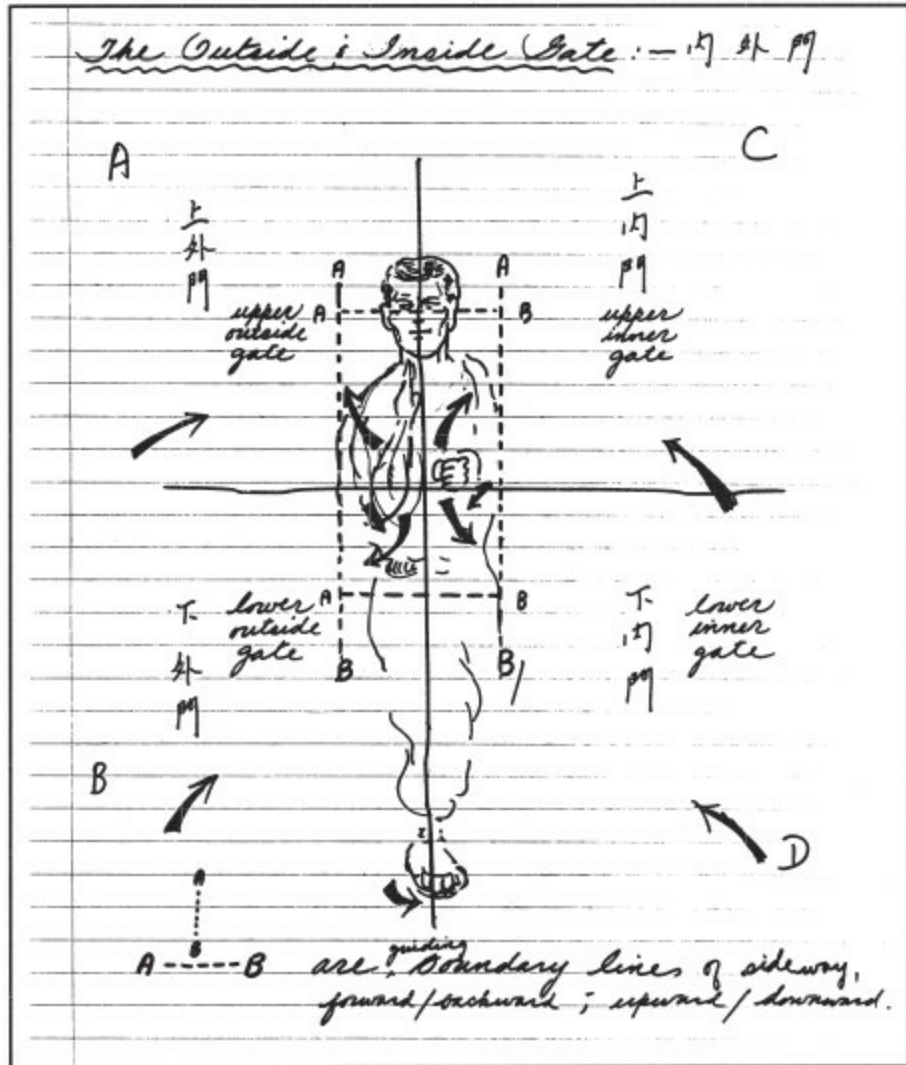 The Outside & Inside Gate :— 内外門
A
C
上
外
門
上
内
門
A
A
A
B
upper
outside
gate
upper
inner
gate
A
B
下
外
門
lower
outside
gate
下
内
門
lower
inner
gate
B
B
B
D
A
B
A B
are guiding boundary lines of sideway,
forward/backward ; upward/downward.